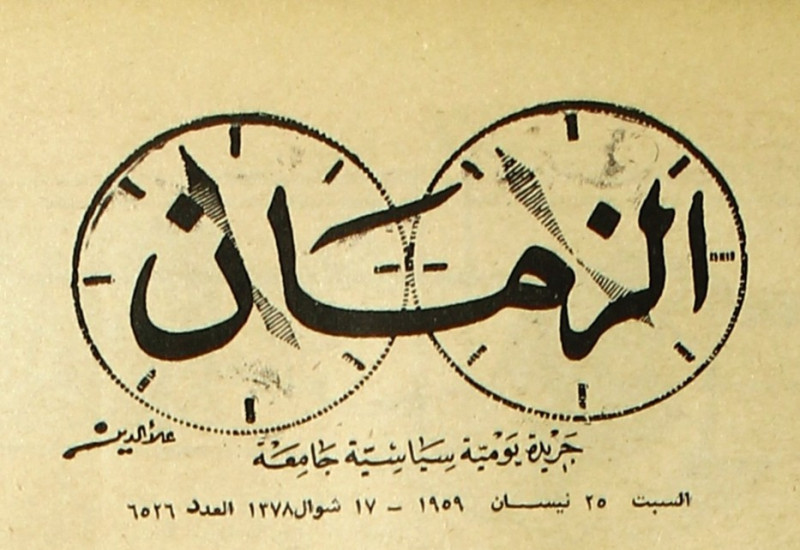 الزمان
علاءالدين
جَرْيدة يَوْميّة سِيَاسِيّة جَامِعَة
السبت ٢٥ نيســان ١٩٥٩ – ١٧ شوال ١٣٧٨ العدد ٦٥٢٦